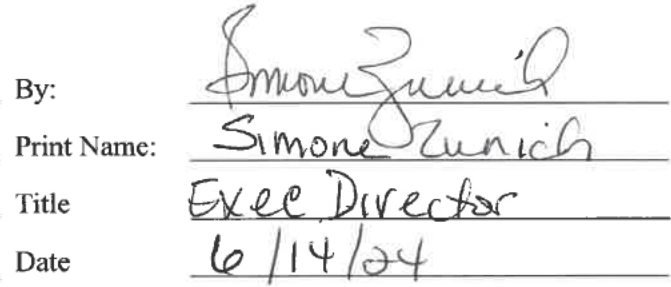 By: Simone Zunich
Print Name: Simone Zunich
Title Exec Director
Date 6/14/24